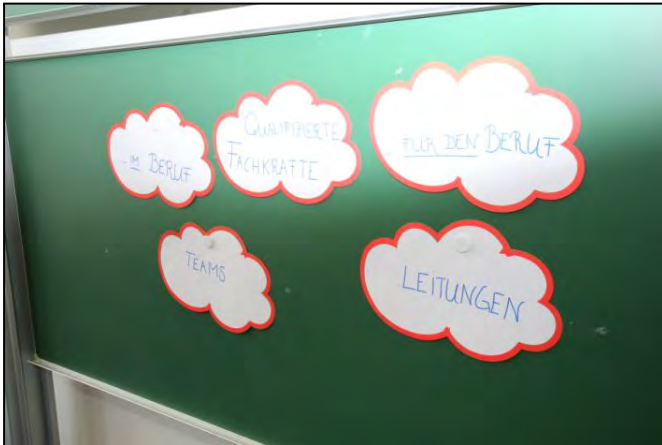 ...IM BERUF
QUALIFIZIERTE
FACHKRÄFTE
...FÜR DEN BERUF
TEAMS
LEITUNGEN